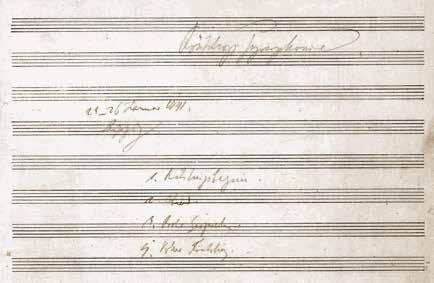 Frühlings Symphonie
23–26 Januar 1841.
Leipzig
1. Frühlingsbeginn.
2. Abend.
3. Frohe Gespielen.
4. Voller Frühling.